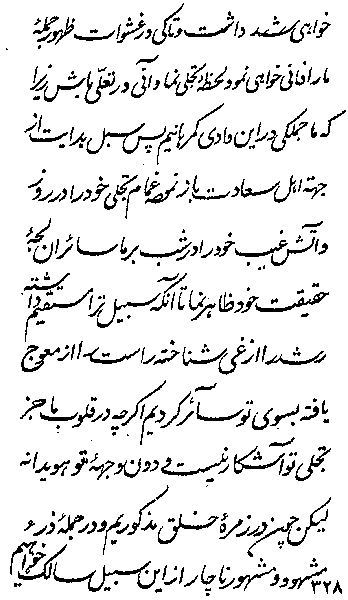 خواهی شد داشت و تاکی در غشوات ظهور جملهٔ
ما را فانی خواهی نمود لحظهٔ تجلی نما و آنی در تعلّی باش زیرا
که ما جملگی در این وادی گمرهانیم پس سبل هدایت از
جهة اهل سعادت باز نموده غمام تجلی خود را در روز
و آتش غیب خود را در شب بر ما سائران لجهٔ
حقیقت خود ظاهر نما تا آنکه سبیل ترا مستقیم داشته
رشد را از غی شناخته راست را از معوج
یافته بسوی تو سائر گردیم اگر چه در قلوب ما جز
تجلی تو آشکار نیست و دون وجههٔ تو هویدا نه
لیکن چون در زمرهٔ خلق مذکوریم و در جملهٔ ذرء
مشهود و مشهور ناچار از این سبیل سالک خواهیم
۳۲۸